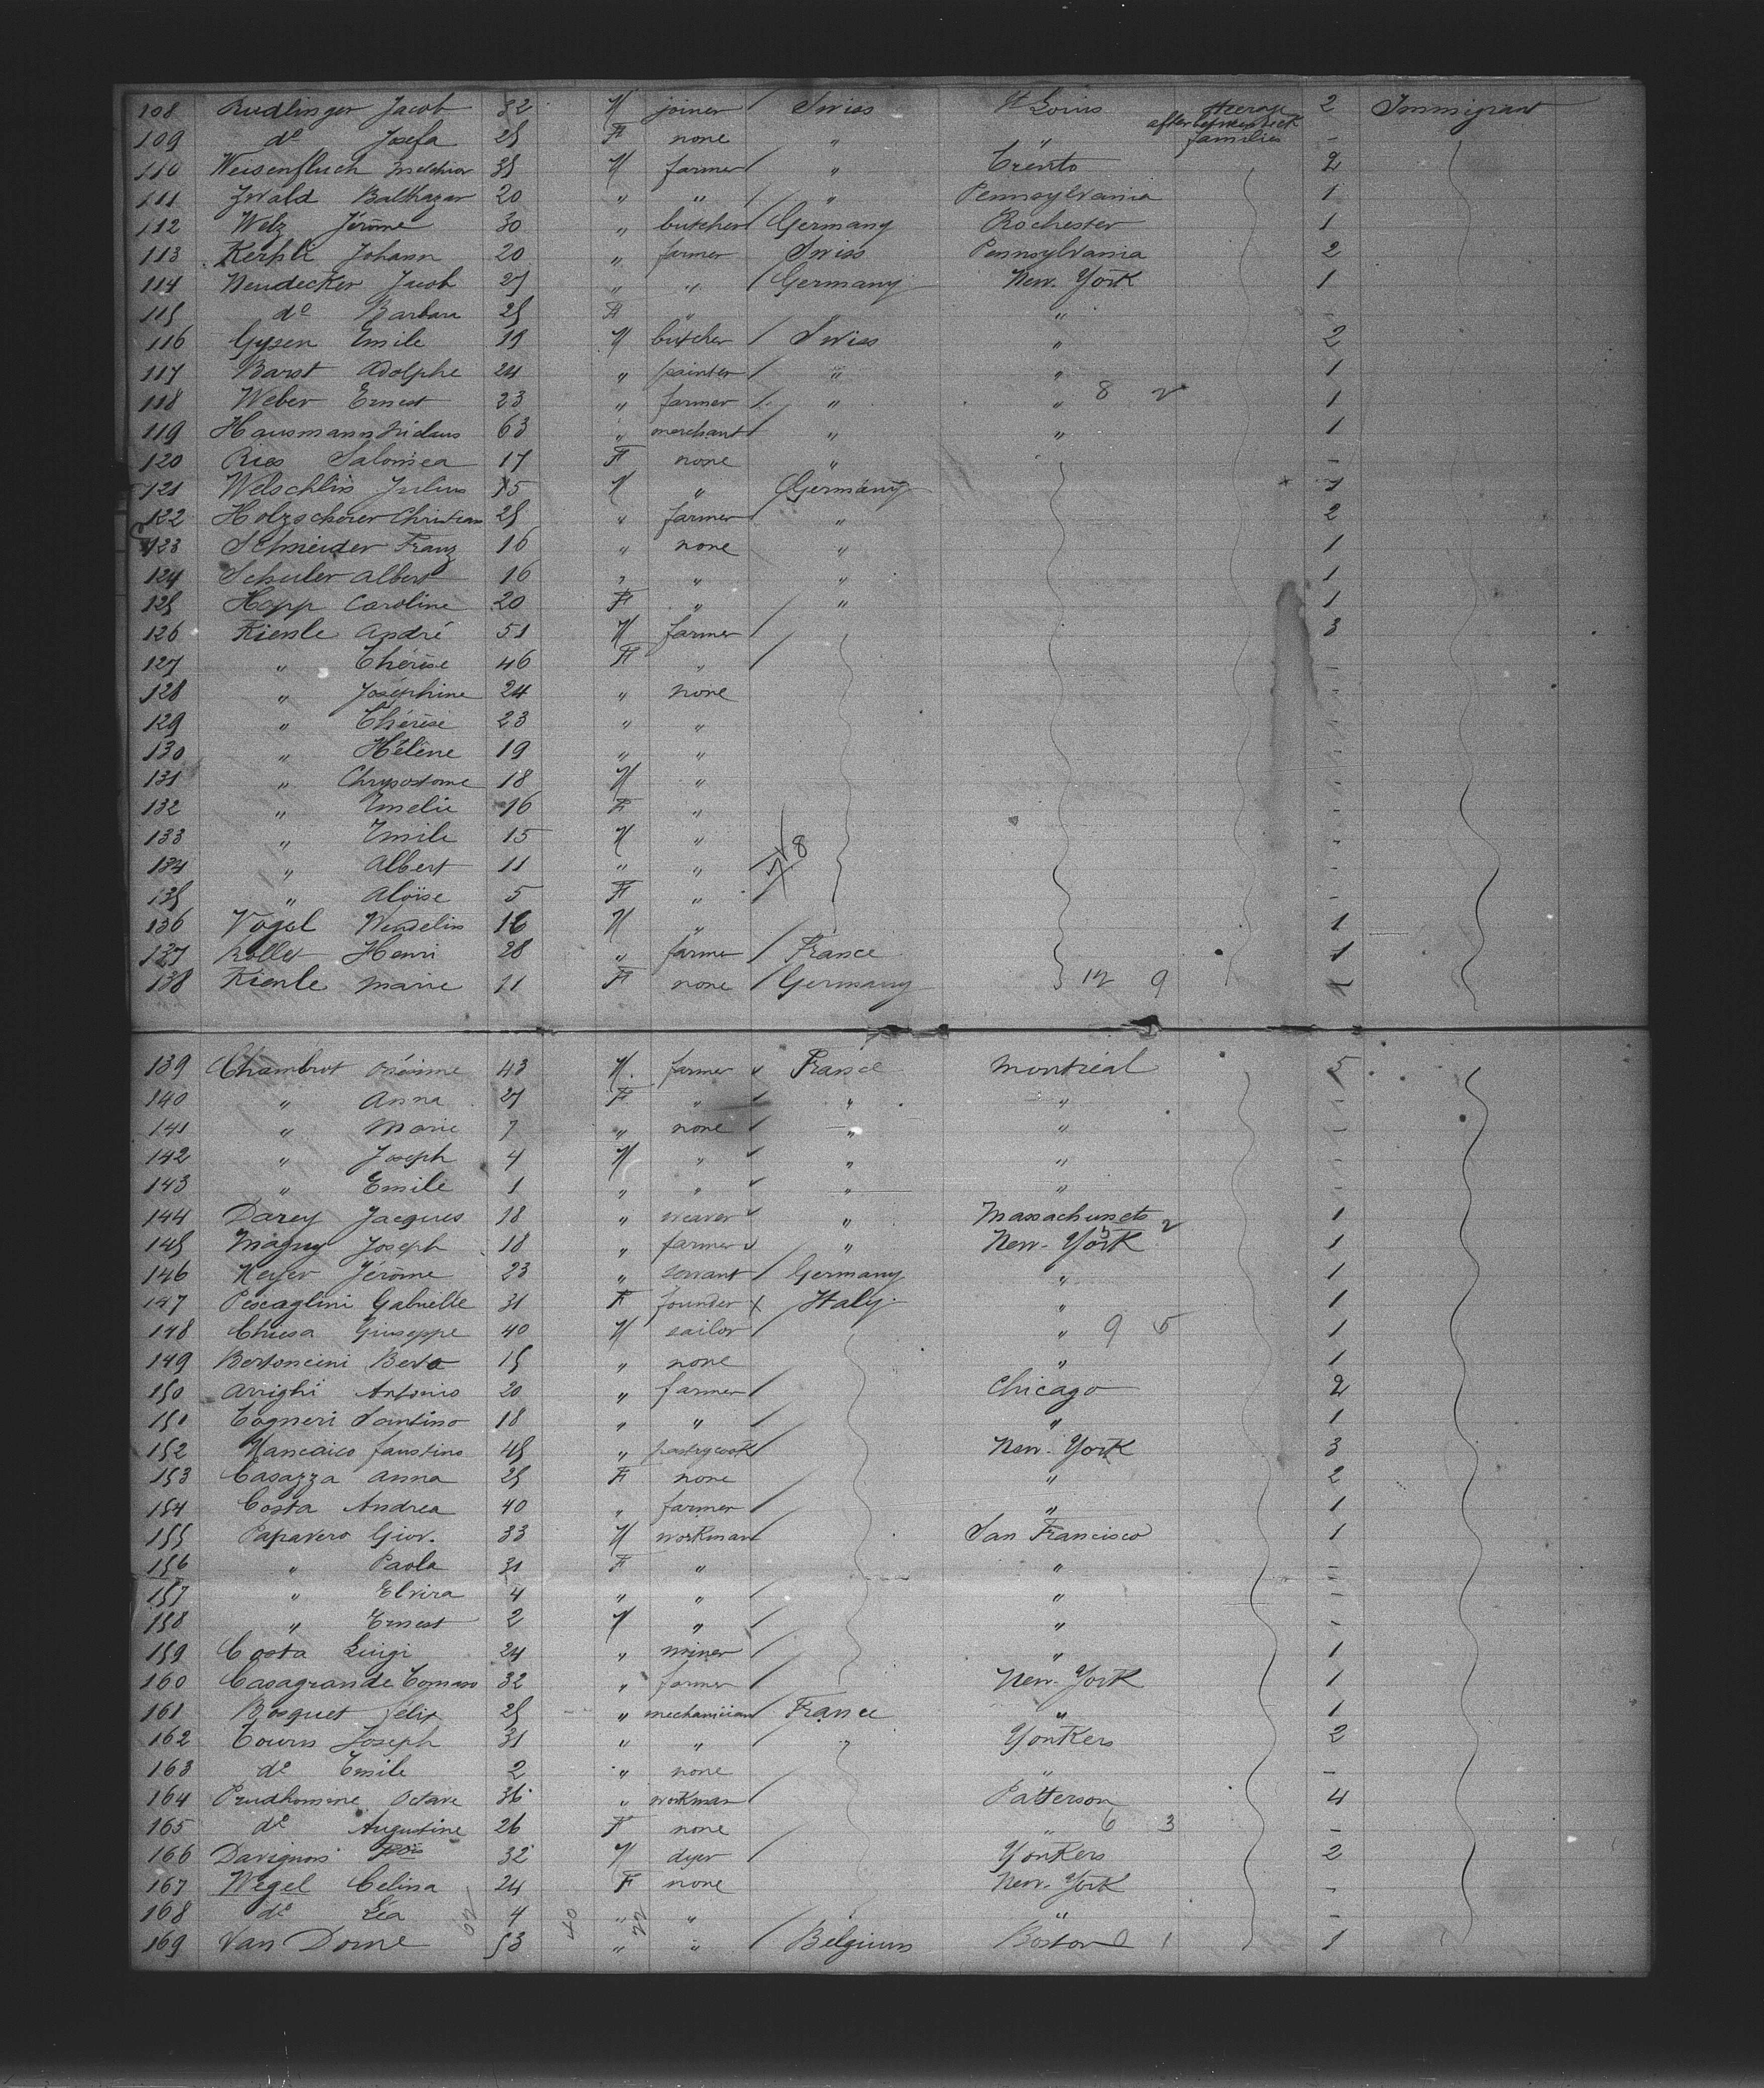 108 Rudlinger Jacob 32 M joiner / Swiss St Louis Steerage 2 Immigrant
after betweendeck
109 do Josefa 25 F none " " families -
110 Weisenfluch Melchior 35 M farmer / " Trento 2
111 Zwald Balthazar 20 " " / " Pennsylvania 1
112 Welz Jérôme 30 " butcher / Germany Rochester 1
113 Kerpli Johann 20 " farmer Swiss Pennsylvania 2
114 Neudecker Jacob 27 " " / Germany New-York 1
115 do Barbara 25 F " " -
116 Gysen Emile 19 M butcher / Swiss " 2
117 Barst Adolphe 24 " painter / " " 1
118 Weber Ernest 23 " farmer / " " 8 2 1
119 Hausmann Niclaus 63 " merchant / " " 1
120 Ries Saloméa 17 F none " -
121 Welschlin Julius 15 M " Germany x 1
122 Holzscherer Christian 25 " farmer / " 2
123 Schneider Franz 16 " none " 1
124 Schuler Albert 16 " " " 1
125 Hopp Caroline 20 F " / " 1
126 Kienle André 51 M farmer / 3
127 " Thérèse 46 F " / -
128 " Joséphine 24 " none -
129 " Thérèse 23 " " -
130 " Hélène 19 " " -
131 " Chrysostome 18 M " -
132 " Emelie 16 F " -
133 " Emile 15 M " -
134 " Albert 11 " " -
135 " Aloïse 5 F " -
136 Vogel Wendelin 16 M " 1
137 Rollet Henri 28 " farmer / France 1
138 Kienle Marie 11 F none / Germany 12 9 -
139 Chambrot 43 M farmer France Montréal 5
140 " Anna 27 F " " " -
141 " Marie 7 " none " " -
142 " Joseph 4 M " " " -
143 " Emile 1 " " " " -
144 Darey Jacques 18 " weaver " Massachusets 2 1
145 Magny Joseph 18 " farmer " New-York 1
146 Meyer Jérôme 23 " servant / Germany " 1
147 Pescaglini Gabrielle 31 F founder x Italy " 1
148 Chiesa Giuseppe 40 M sailor / " 9 5 1
149 Bertoncini Berto 15 " none " 1
150 Arrighi Antonio 20 " farmer / Chicago 2
151 Togneri Santino 18 " " / " 1
152 Mancaico Faustino 45 " pastrycook / New-York 3
153 Casazza Anna 25 F none / " 2
154 Costa Andrea 40 " farmer / " 1
155 Papavero Giov. 33 M workman / San Francisco 1
156 " Paola 31 F " " -
157 " Elvira 4 " " / " -
158 " Ernest 2 M " / " -
159 Costa Luigi 24 " miner / " 1
160 Casagrande Tomaso 32 " farmer / New-York 1
161 Bosquet Félix 25 " mechanician / France " 1
162 Tourn Joseph 31 " " / " Yonkers 2
163 do Emile 2 " none " -
164 Prudhomme Octave 36 " workman / Patterson 4
165 do Augustine 26 F none " 6 3 -
166 Davignon 32 M dyer / Yonkers 2
167 Wegel Celina 24 F none New-York -
168 do Léa 4 " " " -
169 Van Dome 53 " " / Belgium Boston 1 1